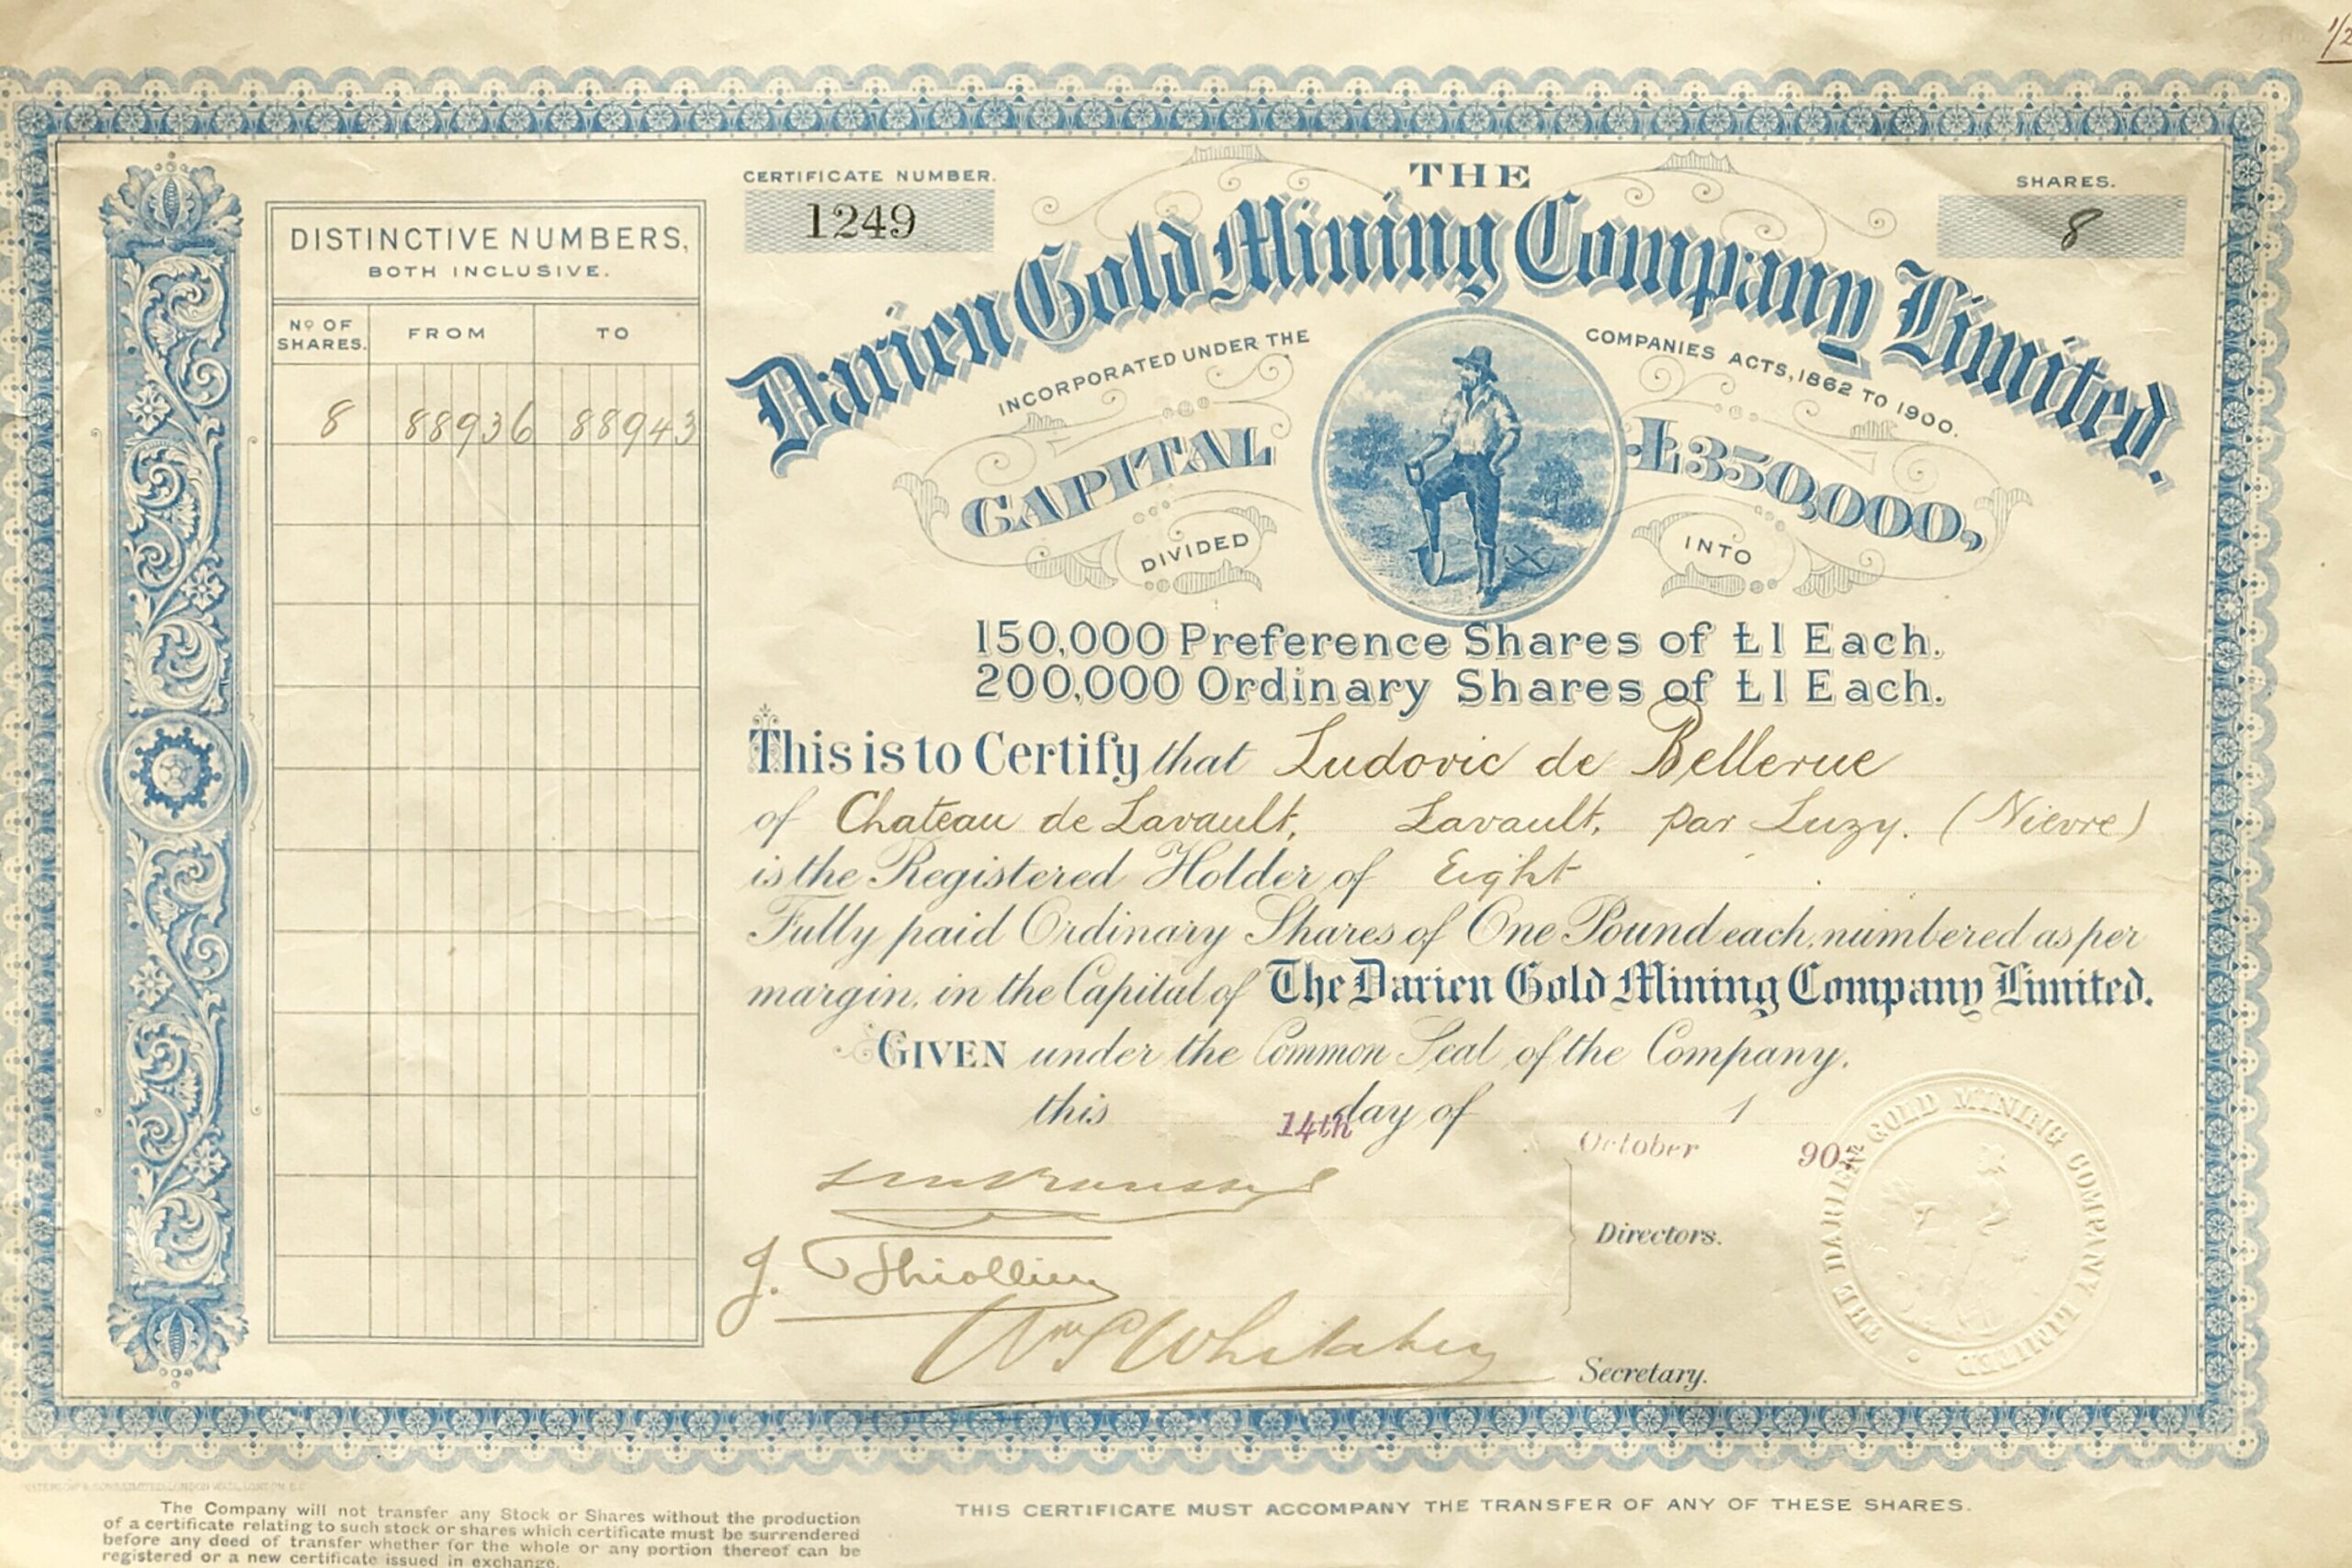 1/2
CERTIFICATE NUMBER.
1249
SHARES.
8
THE
Darien Gold Mining Company Limited.
INCORPORATED UNDER THE COMPANIES ACTS, 1862 TO 1900.
CAPITAL £350,000,
DIVIDED INTO
150,000 Preference Shares of £1 Each.
200,000 Ordinary Shares of £1 Each.
DISTINCTIVE NUMBERS,
BOTH INCLUSIVE.
Nº OF SHARES. FROM TO
8 88936 88943
This is to Certify that Ludovic de Bellevue
of Chateau de Lavault, Lavault, par Luzy. (Nievre)
is the Registered Holder of Eight
Fully paid Ordinary Shares of One Pound each, numbered as per
margin, in the Capital of The Darien Gold Mining Company Limited.
GIVEN under the Common Seal of the Company,
this 14th day of October 190
J. Thiollier
Directors.
Wm P Whitaker
Secretary.
THE DARIEN GOLD MINING COMPANY LIMITED
The Company will not transfer any Stock or Shares without the production
of a certificate relating to such stock or shares which certificate must be surrendered
before any deed of transfer whether for the whole or any portion thereof can be
registered or a new certificate issued in exchange.
THIS CERTIFICATE MUST ACCOMPANY THE TRANSFER OF ANY OF THESE SHARES.